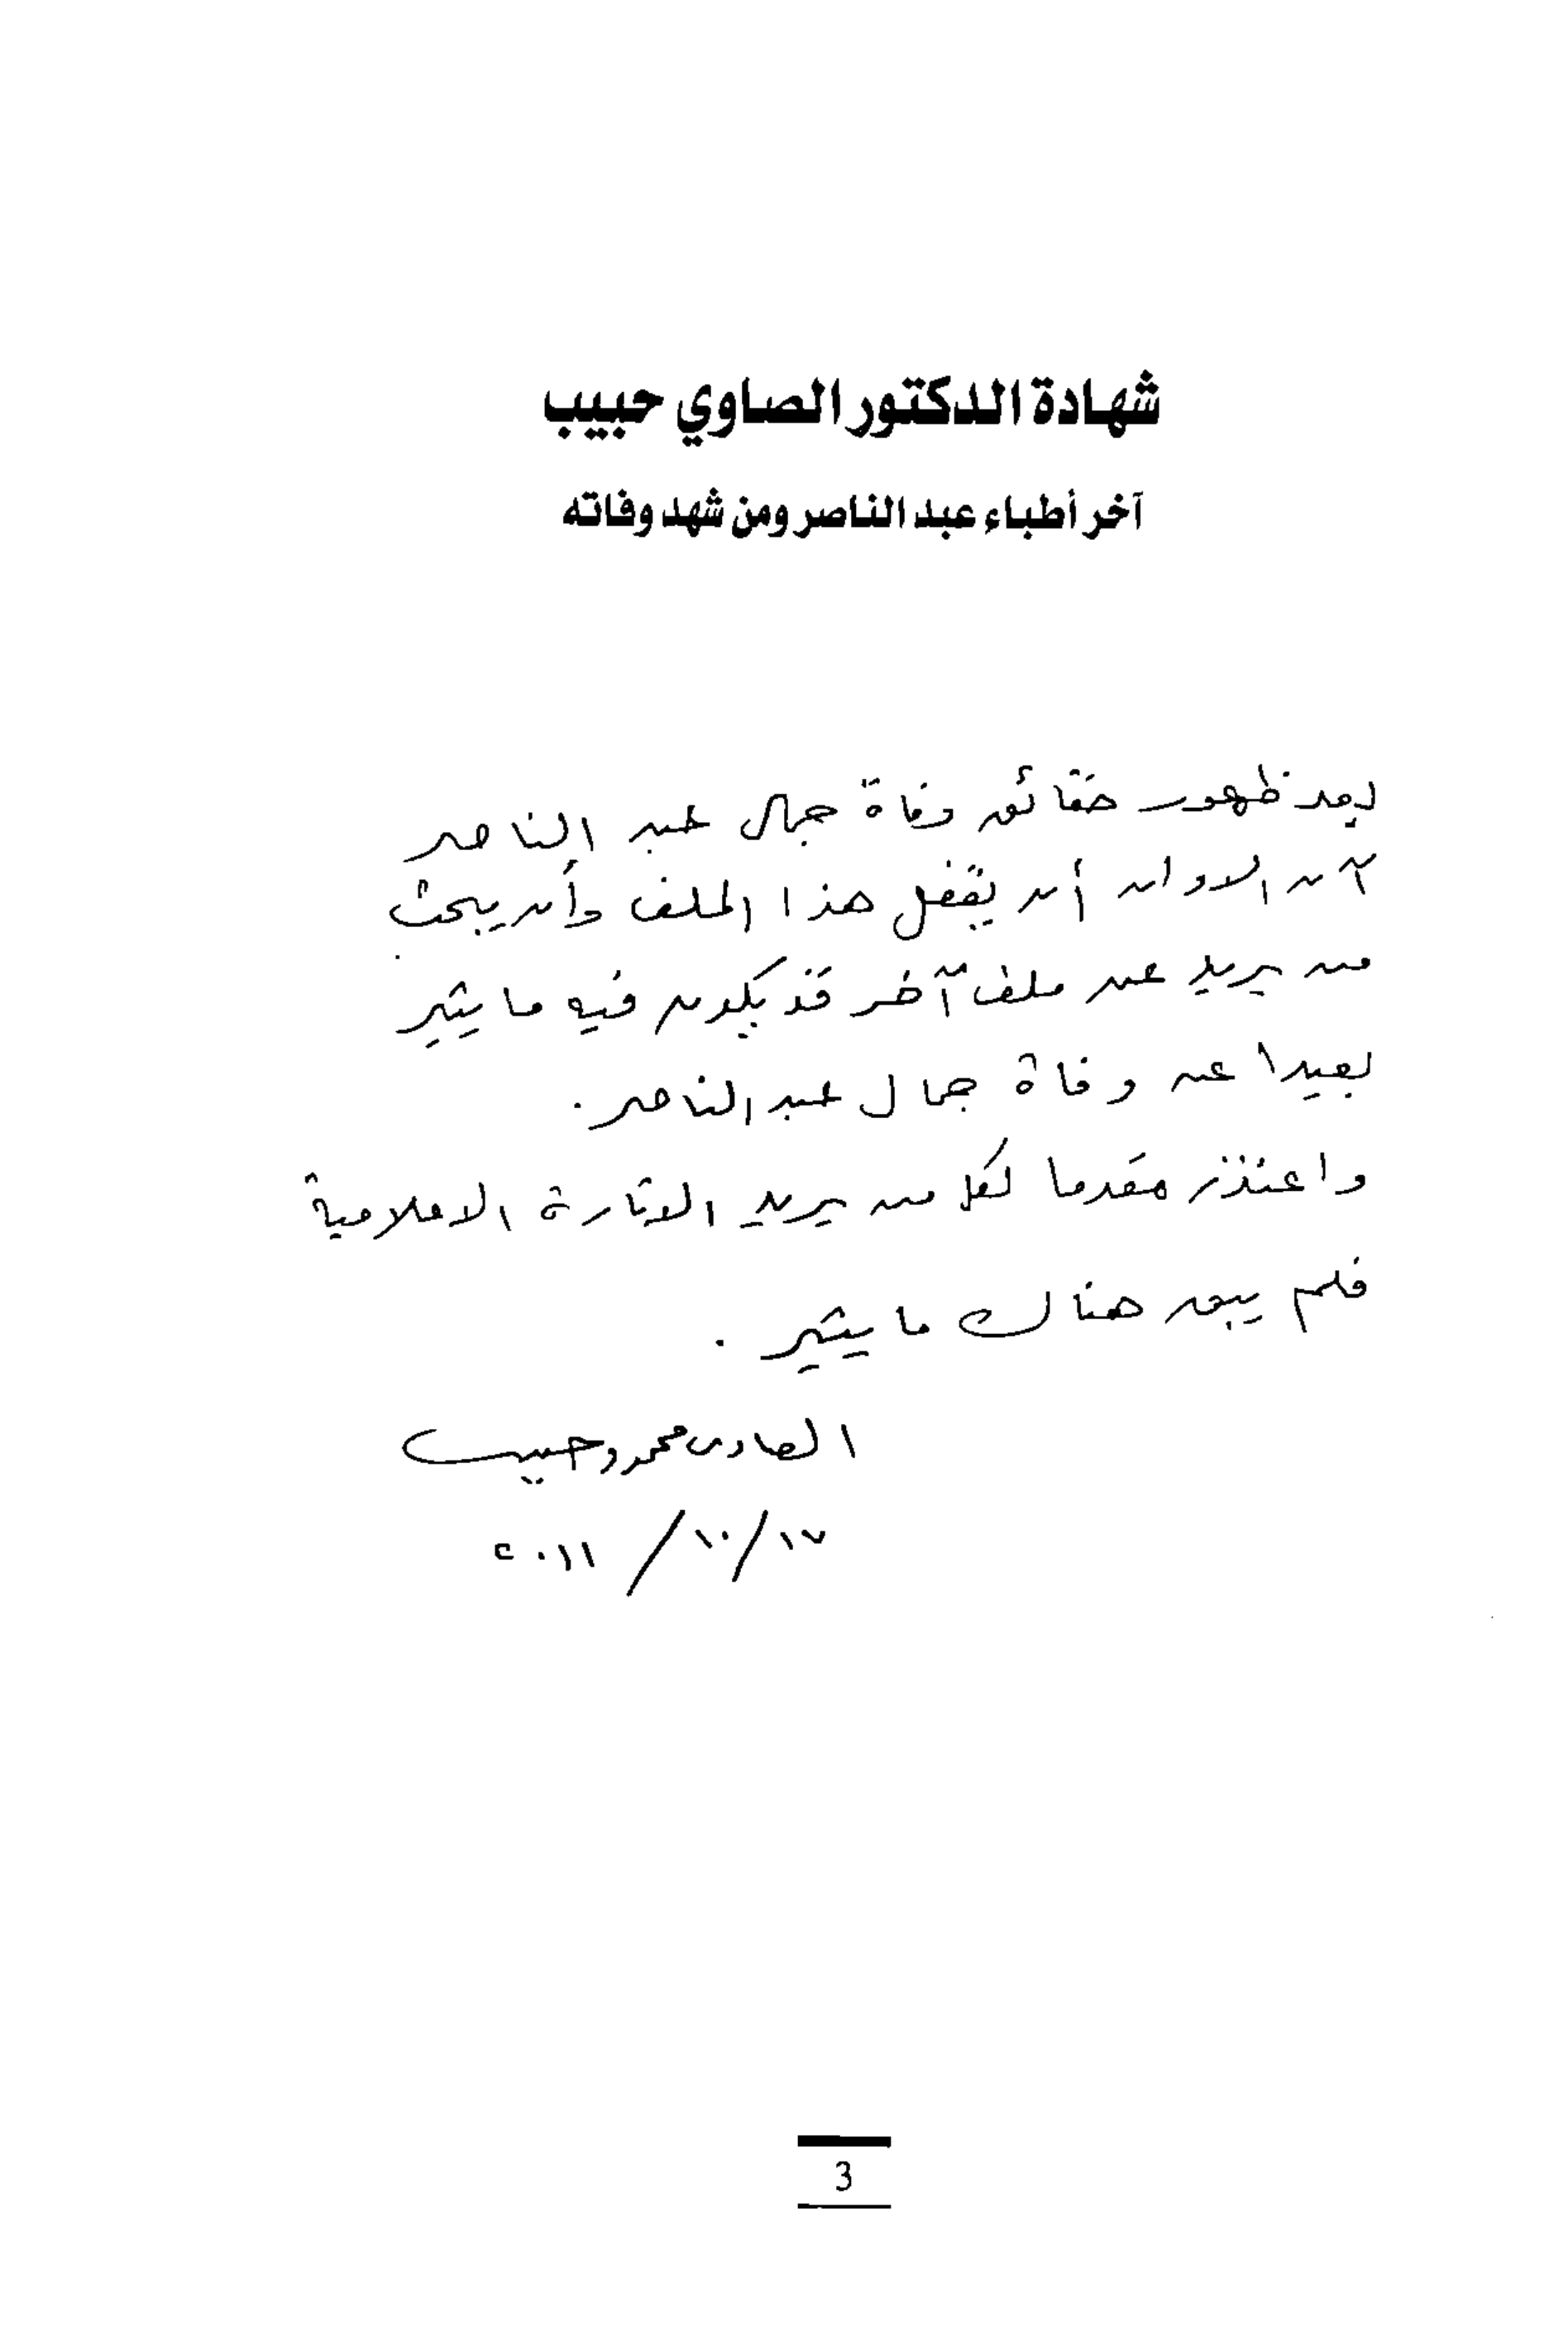 شهادة الدكتور الصاوي حبيب
آخر أطباء عبد الناصر ومن شهد وفاته
بعد ظهور حقائق وفاة جمال عبد الناصر
آن الاوان أن يقفل هذا الملف وأن يبحث
من يريد عن ملف آخر قد يكون فيه ما يثير
بعيدا عن وفاة جمال عبد الناصر .
واعتذر مقدما لكل من يريد الاثارة الاعلامية
فلم يبق هناك ما يثير .
الصاوى محمود حبيب
١٧/١٠/٢٠١١
3